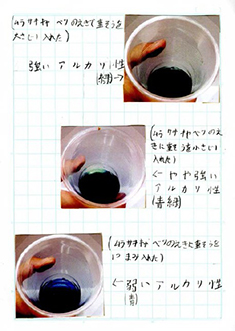 (ムラサキキャベツのえきに重そうを
大さじい入れた)
強い アルカリ性
(緑)→
(ムラサキキャベツのえ
きに重そうを小さじい
入れた)
←やや強い
アルカリ性
(青緑)
(ムラサキキャベツのえきに重そうを
1つまみ入れた)
←弱いアルカリ性
(青)